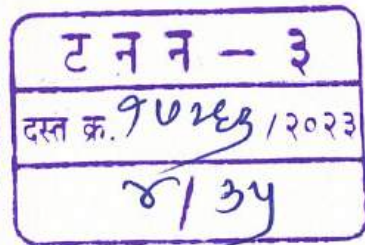 ट न न - ३
दस्त क्र. १७२६३/२०२३
४/३५